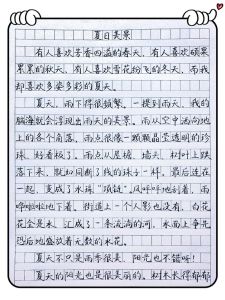 夏日美景
有人喜欢芳香四溢的春天，有人喜欢硕果
累累的秋天，有人喜欢雪花纷飞的冬天，而我
却喜欢多姿多彩的夏天。
夏天，雨下得很频繁，一提到雨天，我的
脑海就会浮现出雨天的美景。雨从空中洒向地
上的各个角落，雨点很像一颗颗晶莹透明的珍
珠，好看极了。雨点从屋檐、墙头、树叶上跌
落下来，就如同断了线的珠子一样，最后连在
一起，变成了水珠“项链”。风呼呼地刮着，雨
哗啦啦地下着，街道上一个人影也没有，白花
花全是水，汇成了一条流淌的河，水面上争先
恐后地盛放着无数的水花。
夏天不只是雨季很美，阳光也不错呀！
夏天的阳光也是很美丽的。树木长得郁郁